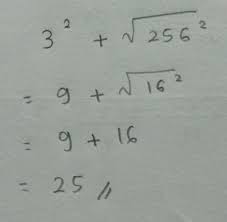 3² + √256²
= 9 + √16²
= 9 + 16
= 25 //